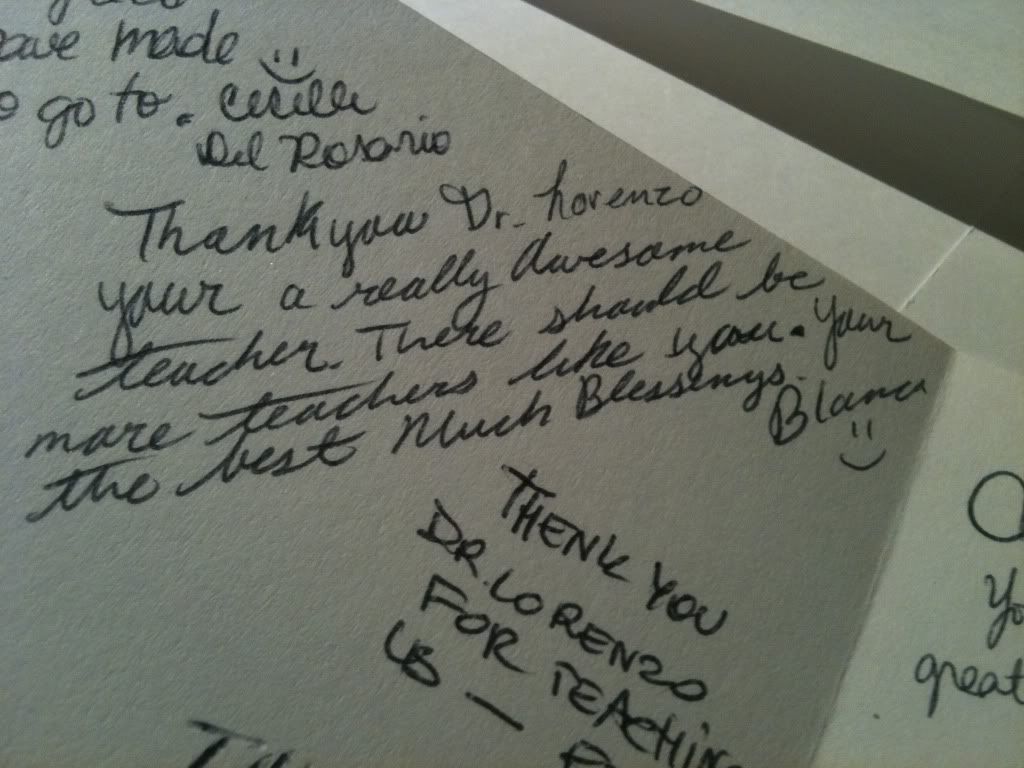 made
go to. Cecille
Del Rosario
Thank you Dr. Lorenzo
your a really Awesome
teacher. There should be
more teachers like you. Your
the best Much Blessings.
Blanca
THENK YOU
DR. LORENZO
FOR TEACHING
US —
great